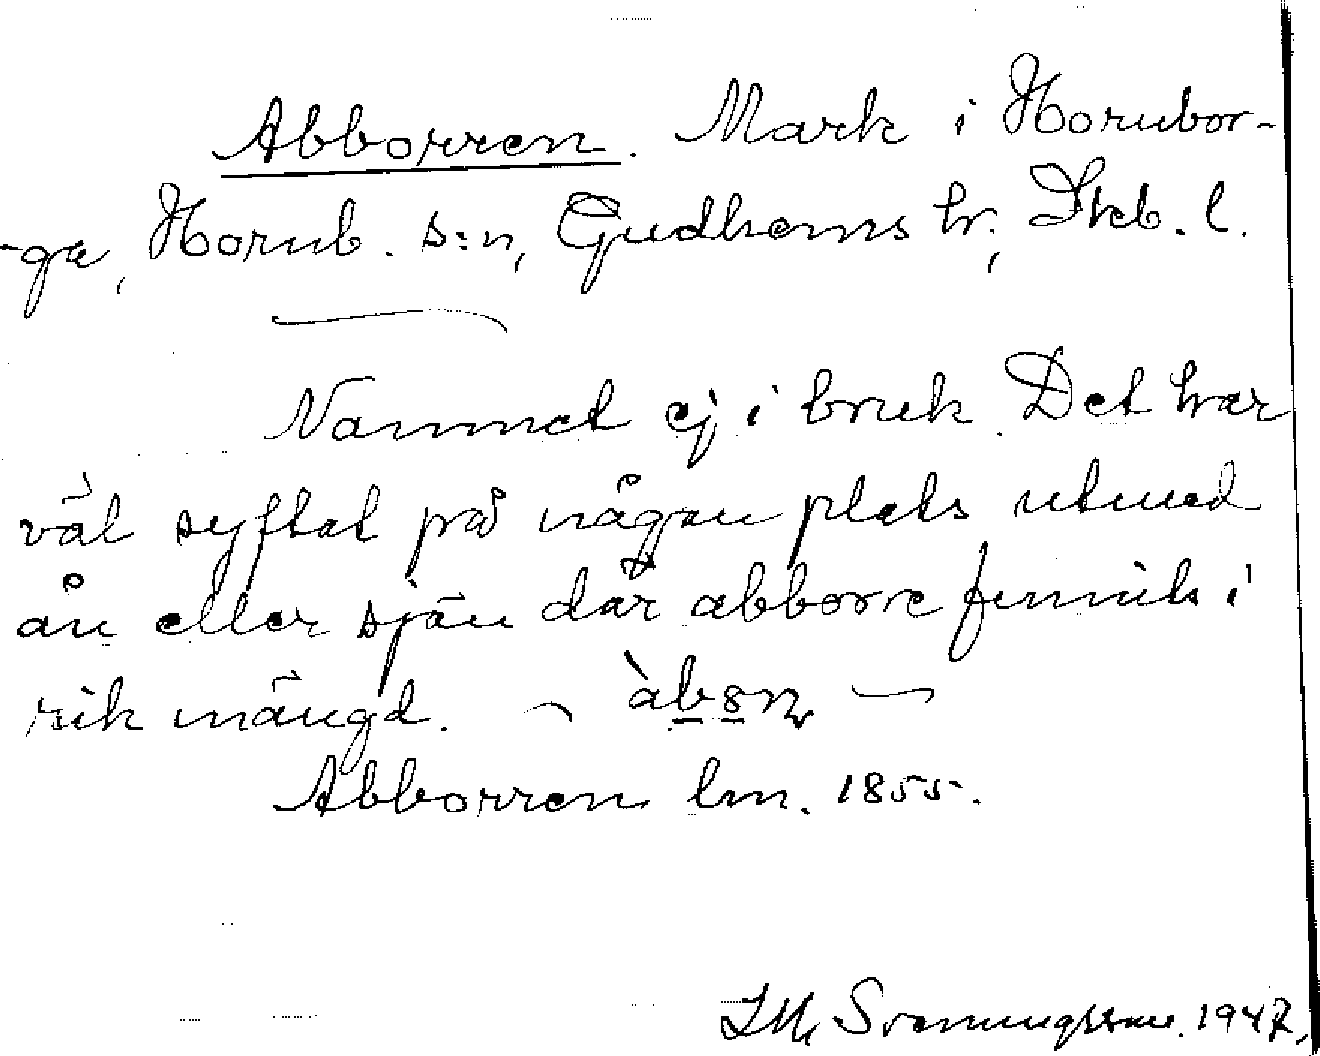 Abborren. Mark i Hornbor-
-ga, Hornb. s:n, Gudhems hr, Skb. l.
Namnet ej i bruk. Det har
väl syftat på någon plats utmed
ån eller sjön där abborre funnits i
rik mängd. –
Abborren lm. 1855.
Svenungsson. 1947.